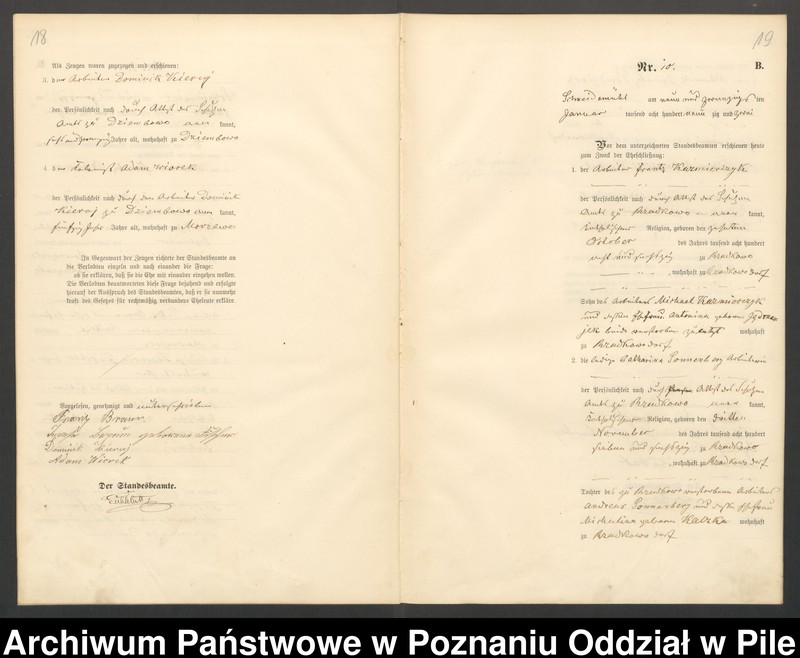 18
Als Zeugen waren zugezogen und erschienen:
3. der Arbeiter Dominik Kieruj
der Persönlichkeit nach durch Attest des Schulzen
Amts zu Dziembowo aner kannt,
Jahre alt, wohnhaft zu Dziembowo
4. der Kolonist Adam Wiorek
der Persönlichkeit nach durch den Arbeiter Dominik
Kieruj zu Dziembowo aner kannt,
fünfzig Jahre alt, wohnhaft zu Morzewo
In Gegenwart der Zeugen richtete der Standesbeamte an
die Verlobten einzeln und nach einander die Frage:
ob sie erklären, daß sie die Ehe mit einander eingehen wollen.
Die Verlobten beantworteten diese Frage bejahend und erfolgte
hierauf der Ausspruch des Standesbeamten, daß er sie nunmehr
kraft des Gesetzes für rechtmäßig verbundene Eheleute erkläre.
Vorgelesen, genehmigt und unterschrieben
Franz
geborene
Dominik Kieruj
Adam Wiorek
Der Standesbeamte.
19
Nr. 10. B.
Schneidemühl am neun und zwanzigs ten
Januar tausend acht hundert neun zig und zwei
Vor dem unterzeichneten Standesbeamten erschienen heute
zum Zweck der Eheschließung:
1. der Arbeiter Frantz Kazmierczyk
der Persönlichkeit nach durch Attest des Schulzen
Amts zu Brodkowo aner kannt,
katholischer Religion, geboren den zehnten
Oktober des Jahres tausend acht hundert
acht und sechszig zu Bradkowo
, wohnhaft zu Bradkowo dorf
Sohn des Arbeiters Michael Kazmierczyk
und dessen Ehefrau Antonina geboren
beide verstorben zuletzt wohnhaft
zu Bradkowo dorf.
2. die ledige Catharina Sonnenberg Arbeiterin
der Persönlichkeit nach durch Attest des Schulzen
Amts zu Bradkowo aner kannt,
katholischer Religion, geboren den dritten
November des Jahres tausend acht hundert
sieben und sechszig zu Bradkowo
, wohnhaft zu Bradkowo dorf
Tochter des zu Bradkowo verstorbenen Arbeiters
Andreas Sonnenberg und dessen Ehefrau
Michalina geboren Kalzka wohnhaft
zu Bradkowo dorf
Archiwum Państwowe w Poznaniu Oddział w Pile